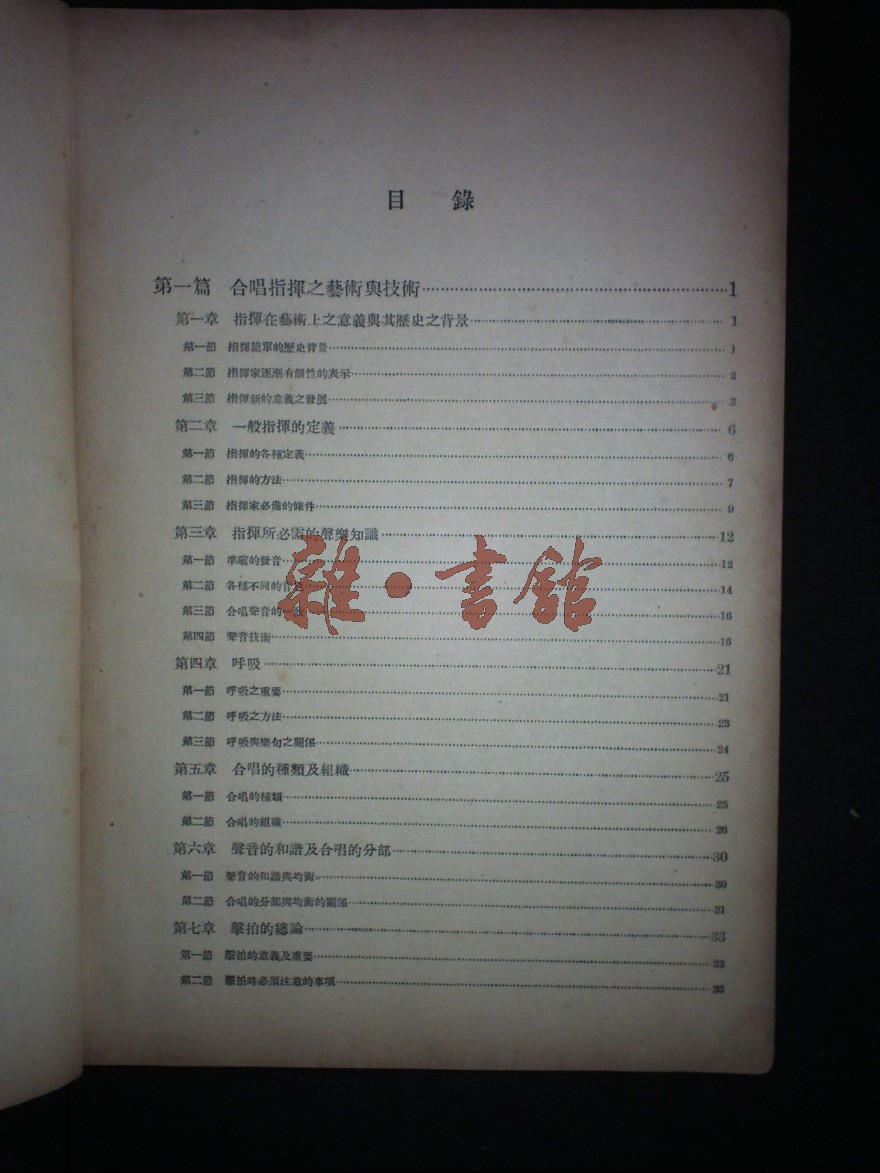 目 錄
第一篇 合唱指揮之藝術與技術 1
第一章 指揮在藝術上之意義與其歷史之背景 1
第一節 指揮簡單的歷史背景 1
第二節 指揮家逐漸有個性的表示 2
第三節 指揮新的意義之發展 3
第二章 一般指揮的定義 6
第一節 指揮的各種定義 6
第二節 指揮的方法 7
第三節 指揮家必備的條件 9
第三章 指揮所必需的聲樂知識 12
第一節 準確的發音 12
第二節 各種不同的音色 14
第三節 合唱聲音的一致 16
第四節 聲音技術 16
第四章 呼吸 21
第一節 呼吸之重要 21
第二節 呼吸之方法 23
第三節 呼吸與樂句之關係 24
第五章 合唱的種類及組織 25
第一節 合唱的種類 25
第二節 合唱的組織 26
第六章 聲音的和諧及合唱的分部 30
第一節 聲音的和諧與均衡 30
第二節 合唱的分部與均衡的關係 31
第七章 擊拍的總論 33
第一節 擊拍的意義及重要 33
第二節 擊拍時必須注意的事項 33
雜·書館